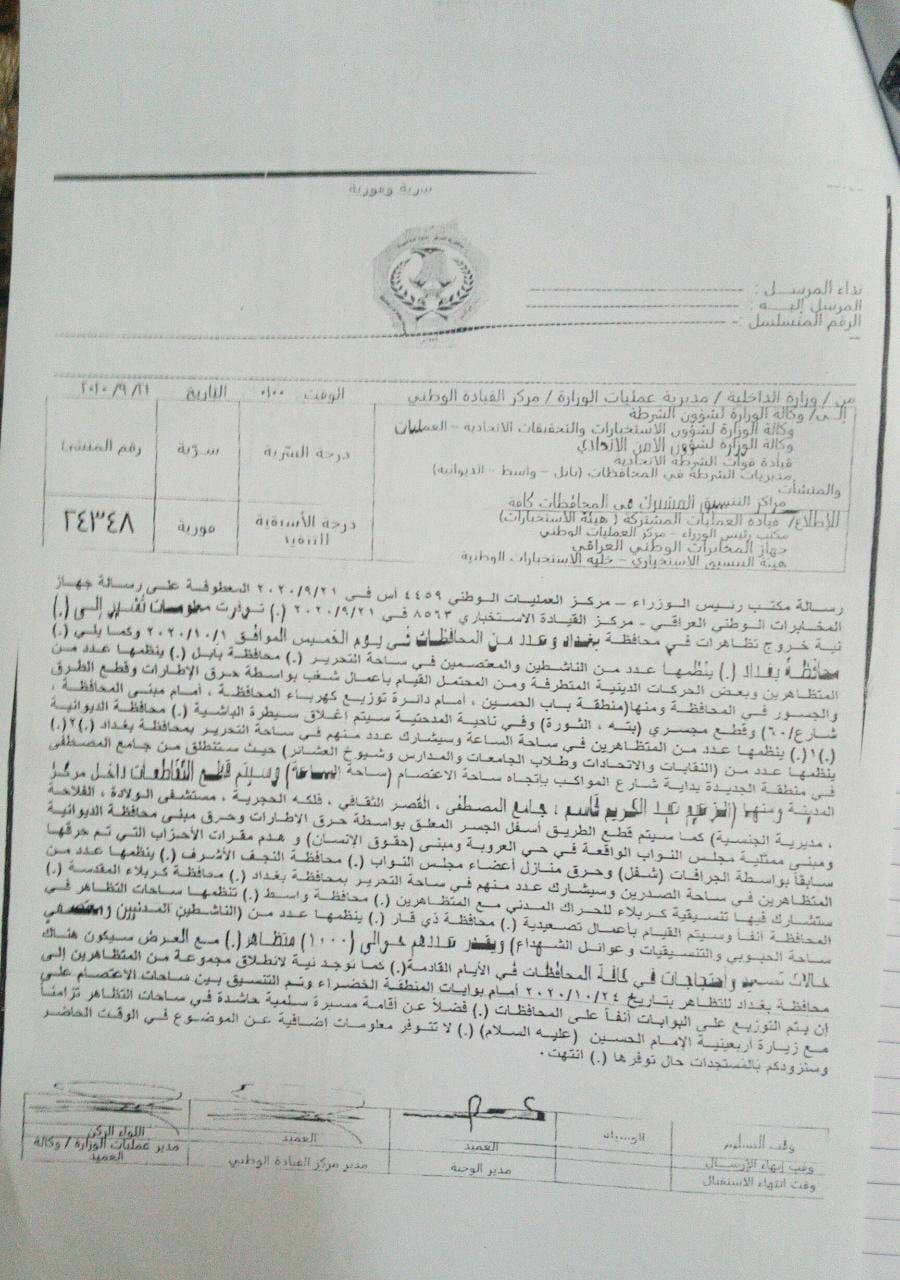 سرية وفورية
نداء المرسل :
المرسل إليه :
الرقم المتسلسل :
من / وزارة الداخلية / مديرية عمليات الوزارة / مركز القيادة الوطني
الوقت ٠١٠٠
التاريخ
٢٠٢٠/٩/٢١
إلى/ وكالة الوزارة لشؤون الشرطة
وكالة الوزارة لشؤون الاستخبارات والتحقيقات الاتحادية – العمليات
وكالة الوزارة لشؤون الامن الاتحادي
قيادة قوات الشرطة الاتحادية
مديريات الشرطة في المحافظات (بابل – واسط – الديوانية)
والمنشآت
مراكز التنسيق المشترك في المحافظات كافة
درجة السرية
سرّية
رقم المنشئ
للإطلاع/ قيادة العمليات المشتركة ( هيئة الأستخبارات)
مكتب رئيس الوزراء – مركز العمليات الوطني
جهاز المخابرات الوطني العراقي
هيئة التنسيق الاستخباري – خلية الاستخبارات الوطنية
درجة الأسبقية
للتنفيذ
فورية
٢٤٣٤٨
رسالة مكتب رئيس الوزراء – مركز العمليات الوطني ٤٤٥٩ أس في ٢٠٢٠/٩/٢١ المعطوفة على رسالة جهاز
المخابرات الوطني العراقي – مركز القيادة الاستخباري ٨٥٦٣ في ٢٠٢٠/٩/٢١ (.) توفرت معلومات تشير إلى (.)
نية خروج تظاهرات في محافظة بغداد وعدد من المحافظات في يوم الخميس الموافق ٢٠٢٠/١٠/١ وكما يلي (.)
محافظة بغداد (.) ينظمها عدد من الناشطين والمعتصمين في ساحة التحرير (.) محافظة بابل (.) ينظمها عدد من
المتظاهرين وبعض الحركات الدينية المتطرفة ومن المحتمل القيام بأعمال شغب بواسطة حرق الإطارات وقطع الطرق
والجسور في المحافظة ومنها(منطقة باب الحسين ، أمام دائرة توزيع كهرباء المحافظة ، أمام مبنى المحافظة ،
شارع/٦٠) وقطع مجسري (بته ، الثورة) وفي ناحية المدحتية سيتم إغلاق سيطرة الباشية (.) محافظة الديوانية
(.)١(.) ينظمها عدد من المتظاهرين في ساحة الساعة وسيشارك عدد منهم في ساحة التحرير بمحافظة بغداد (.)٢(.)
ينظمها عدد من (النقابات والاتحادات وطلاب الجامعات والمدارس وشيوخ العشائر) حيث ستنطلق من جامع المصطفى
في منطقة الجديدة بداية شارع المواكب بإتجاه ساحة الاعتصام (ساحة الساعة) وسيتم قطع التقاطعات داخل مركز
المدينة ومنها (الزعيم عبد الكريم قاسم ، جامع المصطفى ، القصر الثقافي ، فلكه الحجرية ، مستشفى الولادة ، الفلاحة
، مديرية الجنسية) كما سيتم قطع الطريق أسفل الجسر المعلق بواسطة حرق الإطارات وحرق مبنى محافظة الديوانية
ومبنى ممثلية مجلس النواب الواقعة في حي العروبة ومبنى (حقوق الإنسان) و هدم مقرات الأحزاب التي تم حرقها
سابقاً بواسطة الجرافات (شفل) وحرق منازل أعضاء مجلس النواب (.) محافظة النجف الأشرف (.) ينظمها عدد من
المتظاهرين في ساحة الصدرين وسيشارك عدد منهم في ساحة التحرير بمحافظة بغداد (.) محافظة كربلاء المقدسة (.)
ستشارك فيها تنسيقية كربلاء للحراك المدني مع المتظاهرين (.) محافظة واسط (.) تنظمها ساحات التظاهر في
المحافظة أنفاً وسيتم القيام بأعمال تصعيدية (.) محافظة ذي قار (.) ينظمها عدد من (الناشطين المدنيين ومعتصمي
ساحة الحبوبي والتنسيقيات وعوائل الشهداء) ويقدر عددهم حوالي (١٠٠٠) متظاهر (.) مع العرض سيكون هناك
حالات تصعيد واحتجاجات في كافة المحافظات في الأيام القادمة(.) كما توجد نية لانطلاق مجموعة من المتظاهرين إلى
محافظة بغداد للتظاهر بتاريخ ٢٠٢٠/١٠/٢٤ أمام بوابات المنطقة الخضراء وتم التنسيق بين ساحات الاعتصام على
إن يتم التوزيع على البوابات أنفاً على المحافظات (.) فضلاً عن أقامة مسيرة سلمية حاشدة في ساحات التظاهر تزامناً
مع زيارة أربعينية الإمام الحسين (عليه السلام) (.) لا تتوفر معلومات اضافية عن الموضوع في الوقت الحاضر
وسنزودكم بالمستجدات حال توفرها (.) انتهت.
وقت التسليم
العميد
العميد
اللواء الركن
وقت إنهاء الإرسال
مدير الوجبة
مدير مركز القيادة الوطني
مدير عمليات الوزارة / وكالة
العميد
وقت انتهاء الاستقبال